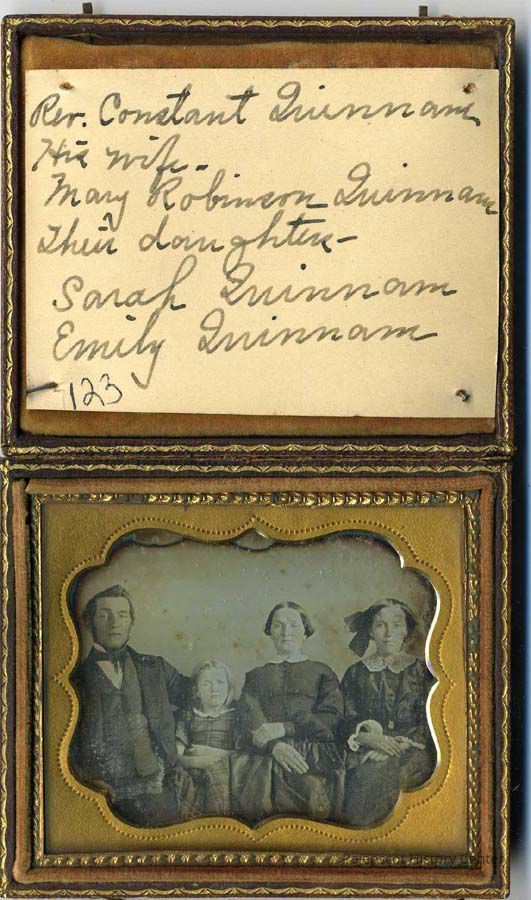 Rev. Constant Quinnam
His wife -
Mary Robinson Quinnam
Their daughters -
Sarah Quinnam
Emily Quinnam
123
History Center